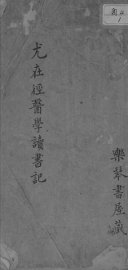 尤在經醫學讀書記
樂琴書屋藏